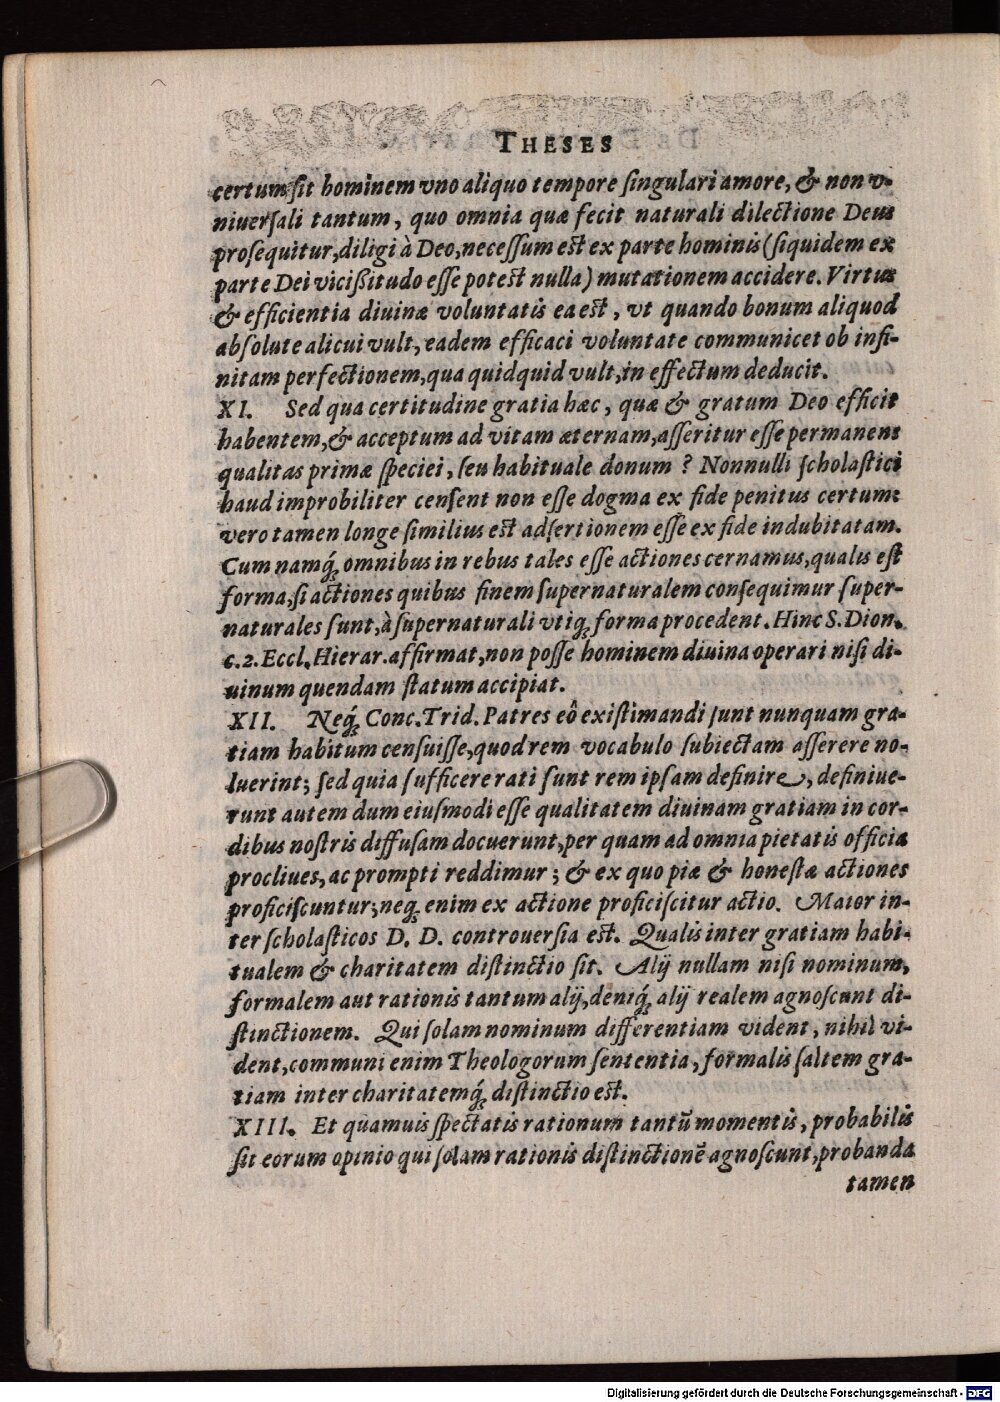 THESES
certum sit hominem vno aliquo tempore singulari amore, & non v-
niuersali tantum, quo omnia quæ fecit naturali dilectione Deus
prosequitur, diligi à Deo, necessum est ex parte hominis (siquidem ex
parte Dei vicißitudo esse potest nulla) mutationem accidere. Virtus
& efficientia diuinæ voluntatis ea est, vt quando bonum aliquod
absolute alicui vult, eadem efficaci voluntate communicet ob infi-
nitam perfectionem, qua quidquid vult, in effectum deducit.
XI. Sed qua certitudine gratia hæc, quæ & gratum Deo efficit
habentem, & acceptum ad vitam æternam, asseritur esse permanens
qualitas primæ speciei, seu habituale donum? Nonnulli scholastici
haud improbiliter censent non esse dogma ex fide penitus certum:
vero tamen longe similius est adsertionem esse ex fide indubitatam.
Cum namq́; omnibus in rebus tales esse actiones cernamus, qualis est
forma, si actiones quibus finem supernaturalem consequimur super-
naturales sunt, à supernaturali vtiq; forma procedent. Hinc S. Dion.
c. 2. Eccl. Hierar. affirmat, non posse hominem diuina operari nisi di-
uinum quendam statum accipiat.
XII. Neq́; Conc. Trid. Patres eô existimandi sunt nunquam gra-
tiam habitum censuisse, quod rem vocabulo subiectam asserere no-
luerint; sed quia sufficere rati sunt rem ipsam definire, definiue-
runt autem dum eiusmodi esse qualitatem diuinam gratiam in cor-
dibus nostris diffusam docuerunt, per quam ad omnia pietatis officia
procliues, ac prompti reddimur; & ex quo piæ & honestæ actiones
proficiscuntur; neq; enim ex actione proficiscitur actio. Maior in-
ter scholasticos D. D. controuersia est. Qualis inter gratiam habi-
tualem & charitatem distinctio sit. Alij nullam nisi nominum,
formalem aut rationis tantum alij, deniq́; alij realem agnoscunt di-
stinctionem. Qui solam nominum differentiam vident, nihil vi-
dent, communi enim Theologorum sententia, formalis saltem gra-
tiam inter charitatemq́; distinctio est.
XIII. Et quamuis spectatis rationum tantū momentis, probabilis
sit eorum opinio qui solam rationis distinctionē agnoscunt, probanda
tamen
Digitalisierung gefördert durch die Deutsche Forschungsgemeinschaft - DFG